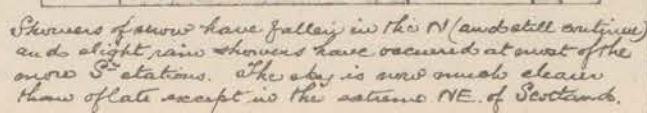 Showers of snow have fallen in the N (and still continue)
and slight rain showers have occurred at most of the
more Sn stations. The sky is now much clearer
than of late except in the extreme NE. of Scotland.